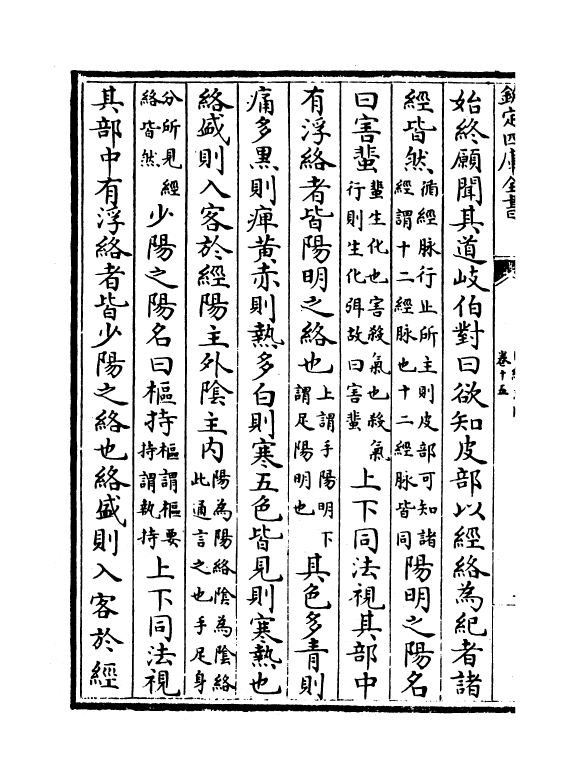 欽定四庫全書
卷十五
始終願聞其道岐伯對曰欲知皮部以經絡為紀者諸
經皆然循經脉行止所主則皮部可知諸經謂十二經脉也十二經脉皆同陽明之陽名
曰害蜚蜚生化也害殺氣也殺氣行則生化弭故曰害蜚上下同法視其部中
有浮絡者皆陽明之絡也上謂手陽明下謂足陽明也其色多青則
痛多黑則痺黄赤則熱多白則寒五色皆見則寒熱也
絡盛則入客於經陽主外陰主内陽為陽絡陰為陰絡此通言之也手足身
分所見經絡皆然少陽之陽名曰樞持樞謂樞要持謂執持上下同法視
其部中有浮絡者皆少陽之絡也絡盛則入客於經